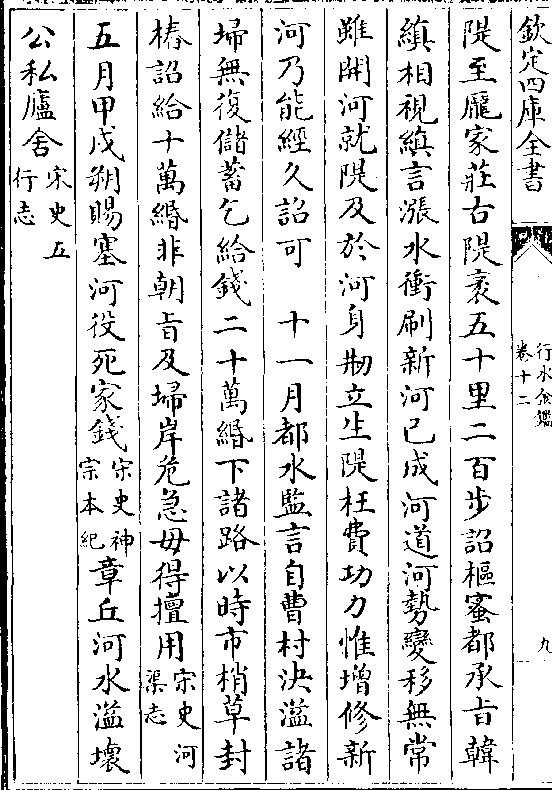 欽定四庫全書
行水金鑑
卷十二
九
隄至龐家莊古隄袤五十里二百步詔樞蜜都承㫖韓
縝相視縝言漲水衝刷新河已成河道河勢變移無常
雖開河就隄及於河身剏立生隄枉費功力惟增修新
河乃能經久詔可　十一月都水監言自曹村決溢諸
埽無復儲蓄乞給錢二十萬緡下諸路以時市梢草封
樁詔給十萬緡非朝㫖及埽岸危急毋得擅用宋史河渠志
五月甲戌朔賜塞河役死家錢宋史神宗本紀章丘河水溢壊
公私廬舍宋史五行志